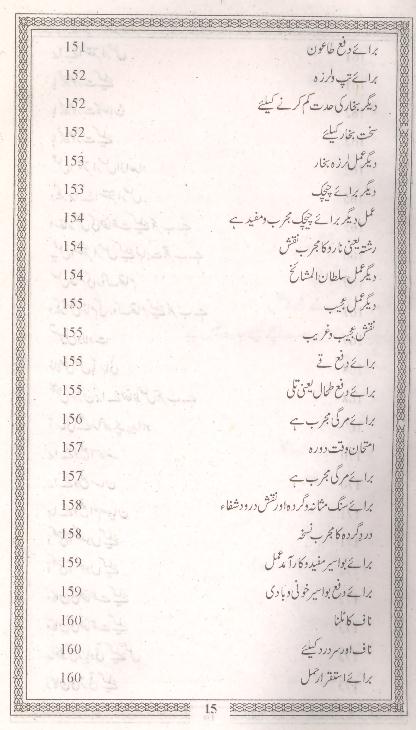 برائے دفع طاعون 151
برائے تپ ولرزہ 152
دیگر بخار کی حدت کم کرنے کیلئے 152
سخت بخار کیلئے 152
دیگر عمل لرزہ بخار 153
دیگر برائے چیچک 153
عمل دیگر برائے چیچک مجرب و مفید ہے 154
رشتہ یعنی نارو کا مجرب نقش 154
دیگر عمل سلطان المشائخ 154
دیگر عمل عجیب 155
نقش عجیب و غریب 155
برائے دفع قے 155
برائے دفع طحال یعنی تلی 155
برائے مرگی مجرب ہے 156
امتحان وقت دورہ 157
برائے مرگی مجرب ہے 157
برائے سنگ مثانہ و گردہ اور نقش درود شفاء 158
درد گردہ کا مجرب نسخہ 158
برائے بواسیر مفید و کار آمد عمل 159
برائے دفع بواسیر خونی و بادی 159
ناف کا ٹلنا 160
ناف اور سر درد کیلئے 160
برائے استقرار حمل 160
15